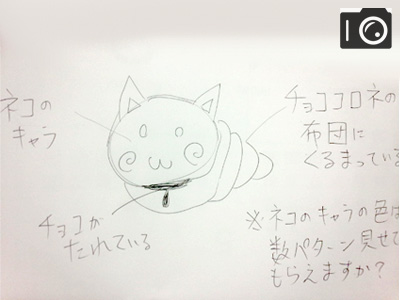 ネコの
キャラ
チョココロネの
布団に
くるまっている
チョコが
たれている
※ネコのキャラの色は
数パターン見せて
もらえますか?